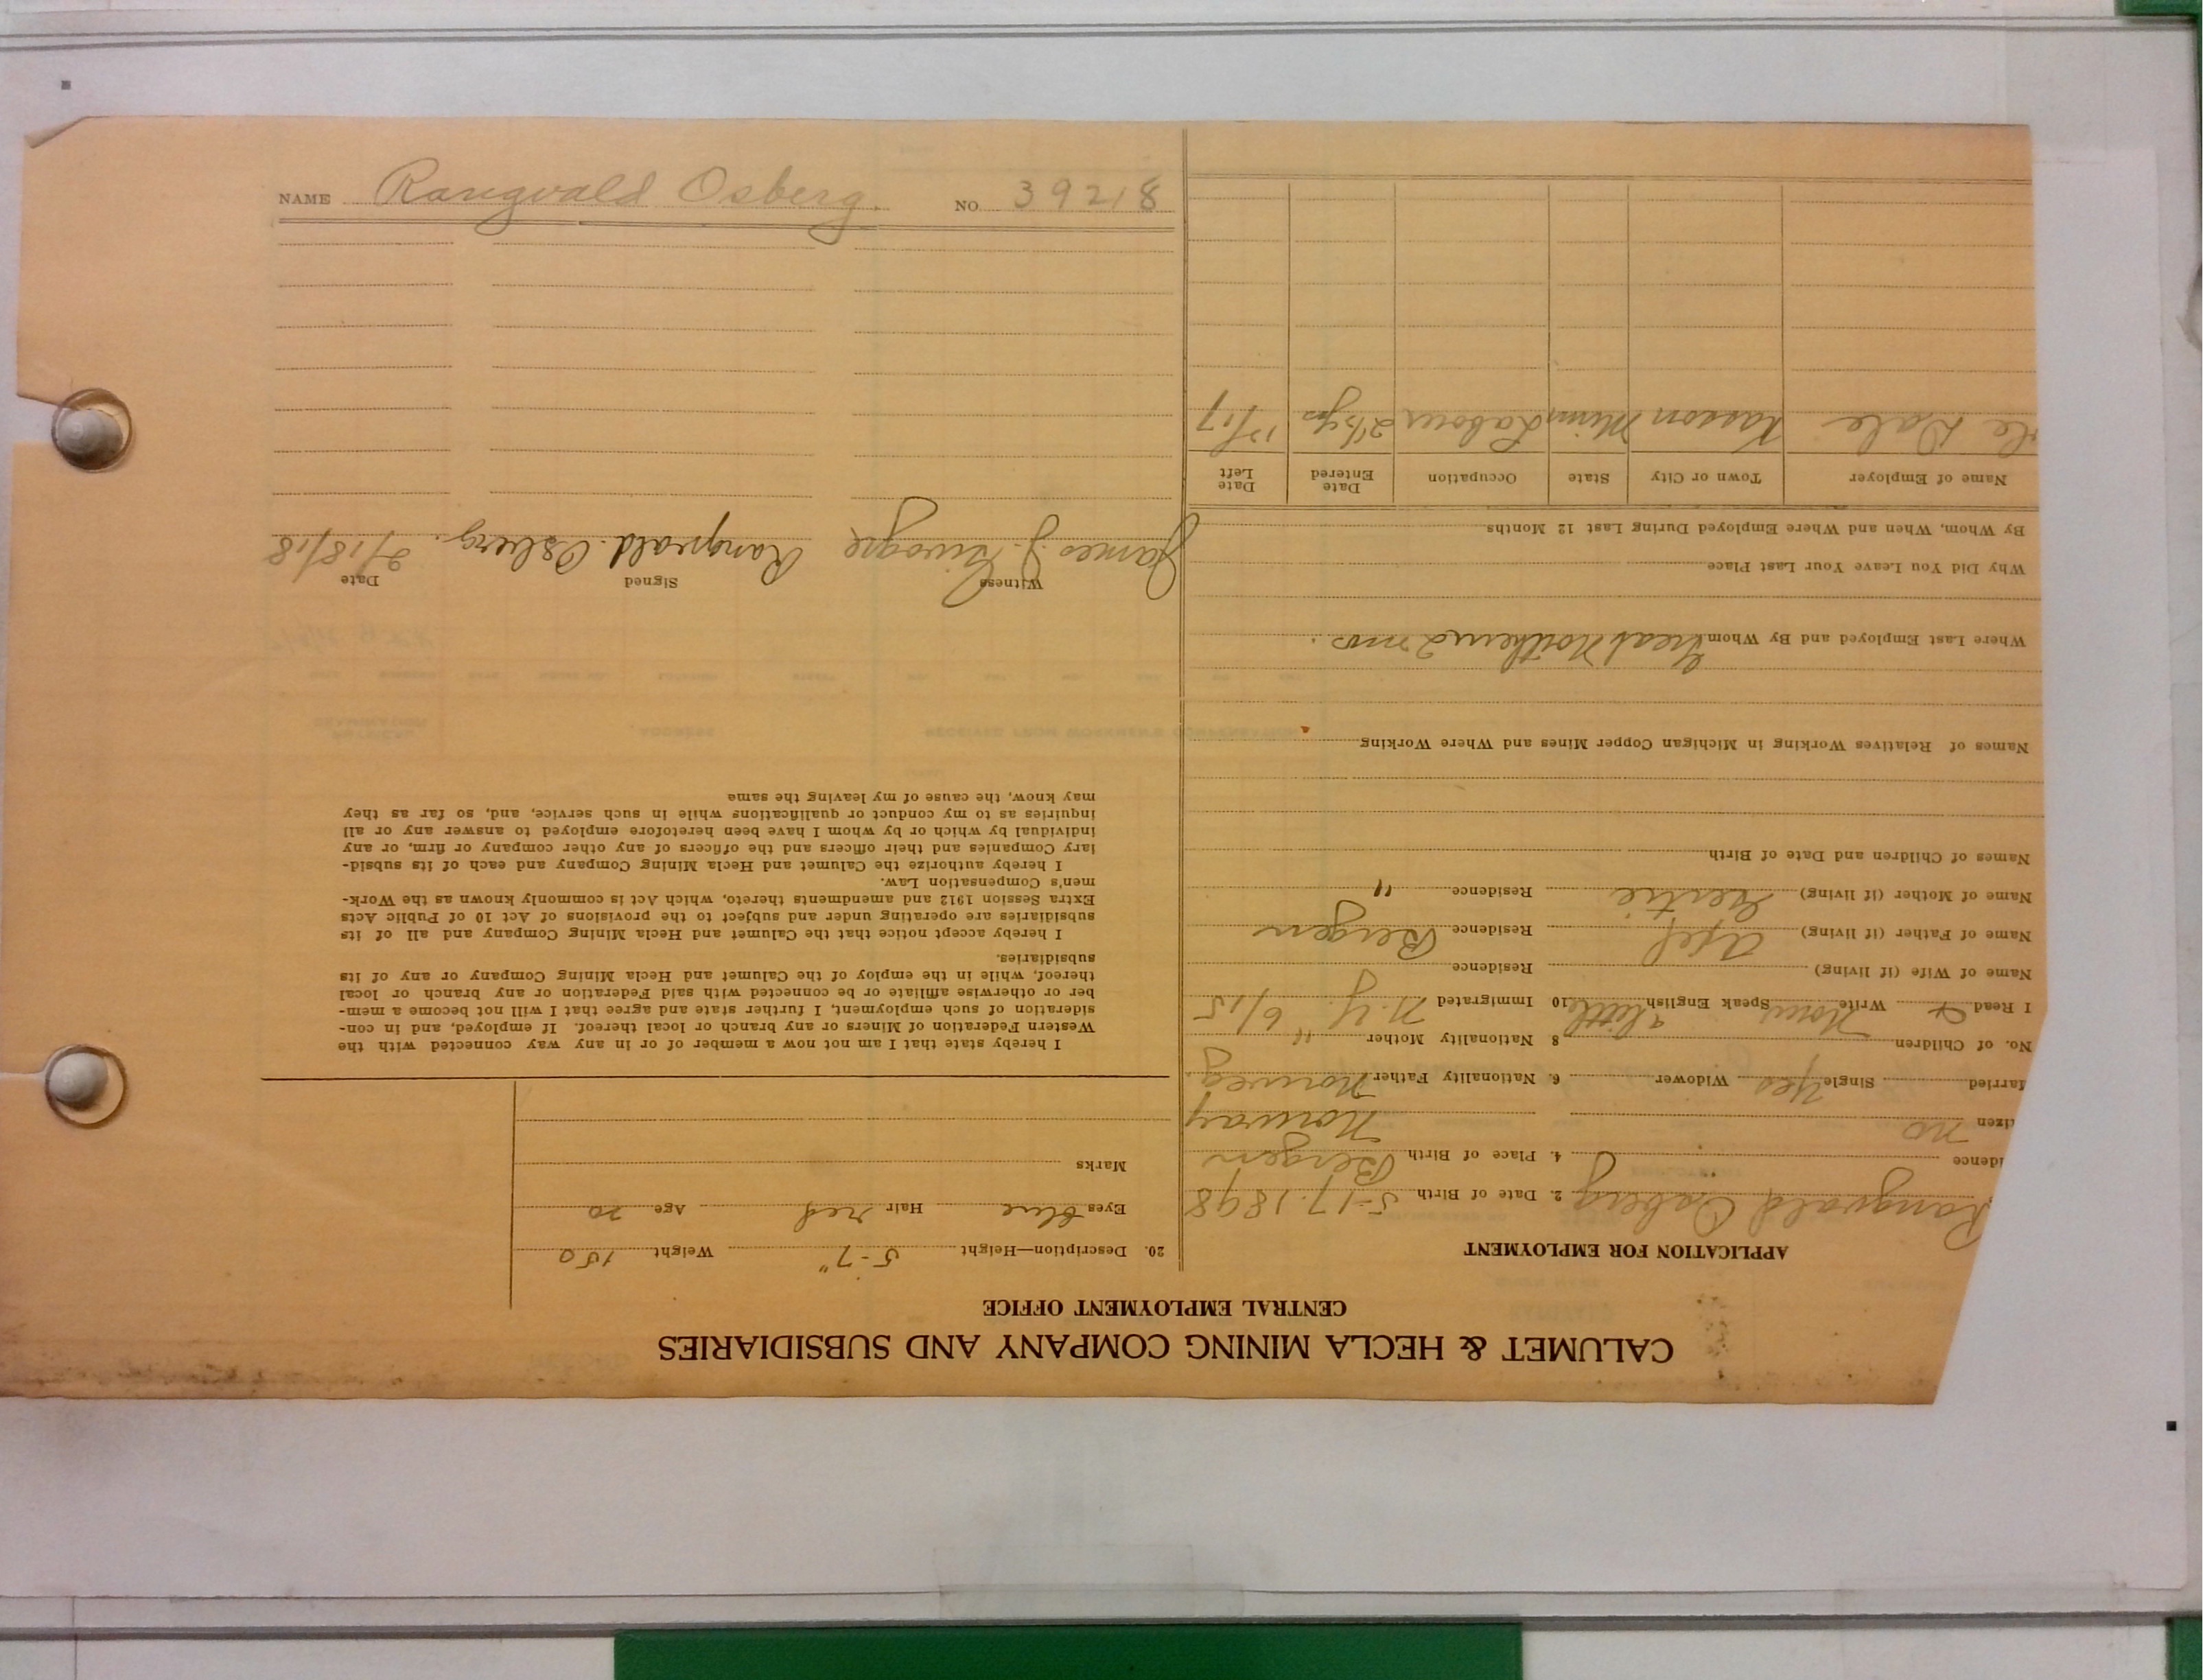 CALUMET & HECLA MINING COMPANY AND SUBSIDIARIES
CENTRAL EMPLOYMENT OFFICE
APPLICATION FOR EMPLOYMENT
Rangvald Osberg 2. Date of Birth 5-17-1898
idence 4. Place of Birth Bergen
izen no Norway
larried Single Yes Widower 6. Nationality Father Norweg.
No. of Children 8 Nationality Mother "
I Read & Write Norw Speak English a little 10 Immigrated N.Y. 6/15
Name of Wife (if living) Residence
Name of Father (if living) Axel Residence Bergen
Name of Mother (if living) Gertie Residence "
Names of Children and Date of Birth
Names of Relatives Working in Michigan Copper Mines and Where Working
Where Last Employed and By Whom Great Northern 2 mos.
Why Did You Leave Your Last Place
By Whom, When and Where Employed During Last 12 Months
Name of Employer Town or City State Occupation Date Entered Date Left
Dale Kasson Minn Labour 2 1/2 yrs 12/17
20. Description—Height 5-7" Weight 150
Eyes blue Hair red Age 20
Marks
I hereby state that I am not now a member of or in any way connected with the
Western Federation of Miners or any branch or local thereof. If employed, and in con-
sideration of such employment, I further state and agree that I will not become a mem-
ber or otherwise affiliate or be connected with said Federation or any branch or local
thereof, while in the employ of the Calumet and Hecla Mining Company or any of its
subsidiaries.
I hereby accept notice that the Calumet and Hecla Mining Company and all of its
subsidiaries are operating under and subject to the provisions of Act 10 of Public Acts
Extra Session 1912 and amendments thereto, which Act is commonly known as the Work-
men's Compensation Law.
I hereby authorize the Calumet and Hecla Mining Company and each of its subsid-
iary Companies and their officers and the officers of any other company or firm, or any
individual by which or by whom I have been heretofore employed to answer any or all
inquiries as to my conduct or qualifications while in such service, and, so far as they
may know, the cause of my leaving the same
Witness Signed Date
James J. Rangvald. Osberg. 2/18/18
NAME Rangvald Osberg. NO. 39218